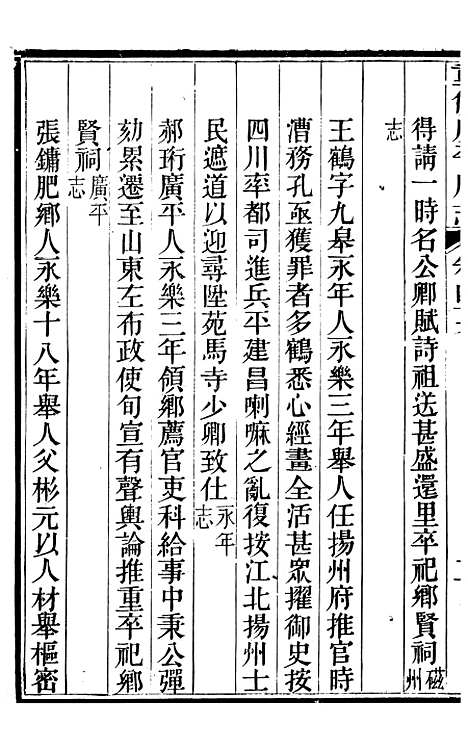 得請一時名公卿賦詩祖送甚盛還里卒祀鄉賢祠磁州
志
王鶴字九皋永年人永樂三年舉人任揚州府推官時
漕務孔亟獲罪者多鶴悉心經畫全活甚眾擢御史按
四川率都司進兵平建昌喇嘛之亂復按江北揚州士
民遮道以迎尋陞苑馬寺少卿致仕永年志
郝珩廣平人永樂三年領鄉薦官吏科給事中秉公彈
劾累遷至山東左布政使旬宣有聲輿論推重卒祀鄉
賢祠廣平志
張鏞肥鄉人永樂十八年舉人父彬元以人材舉樞密